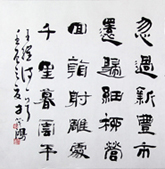 忽過新豐市
還歸細柳營
回看射雕處
千里暮雲平
王維詩